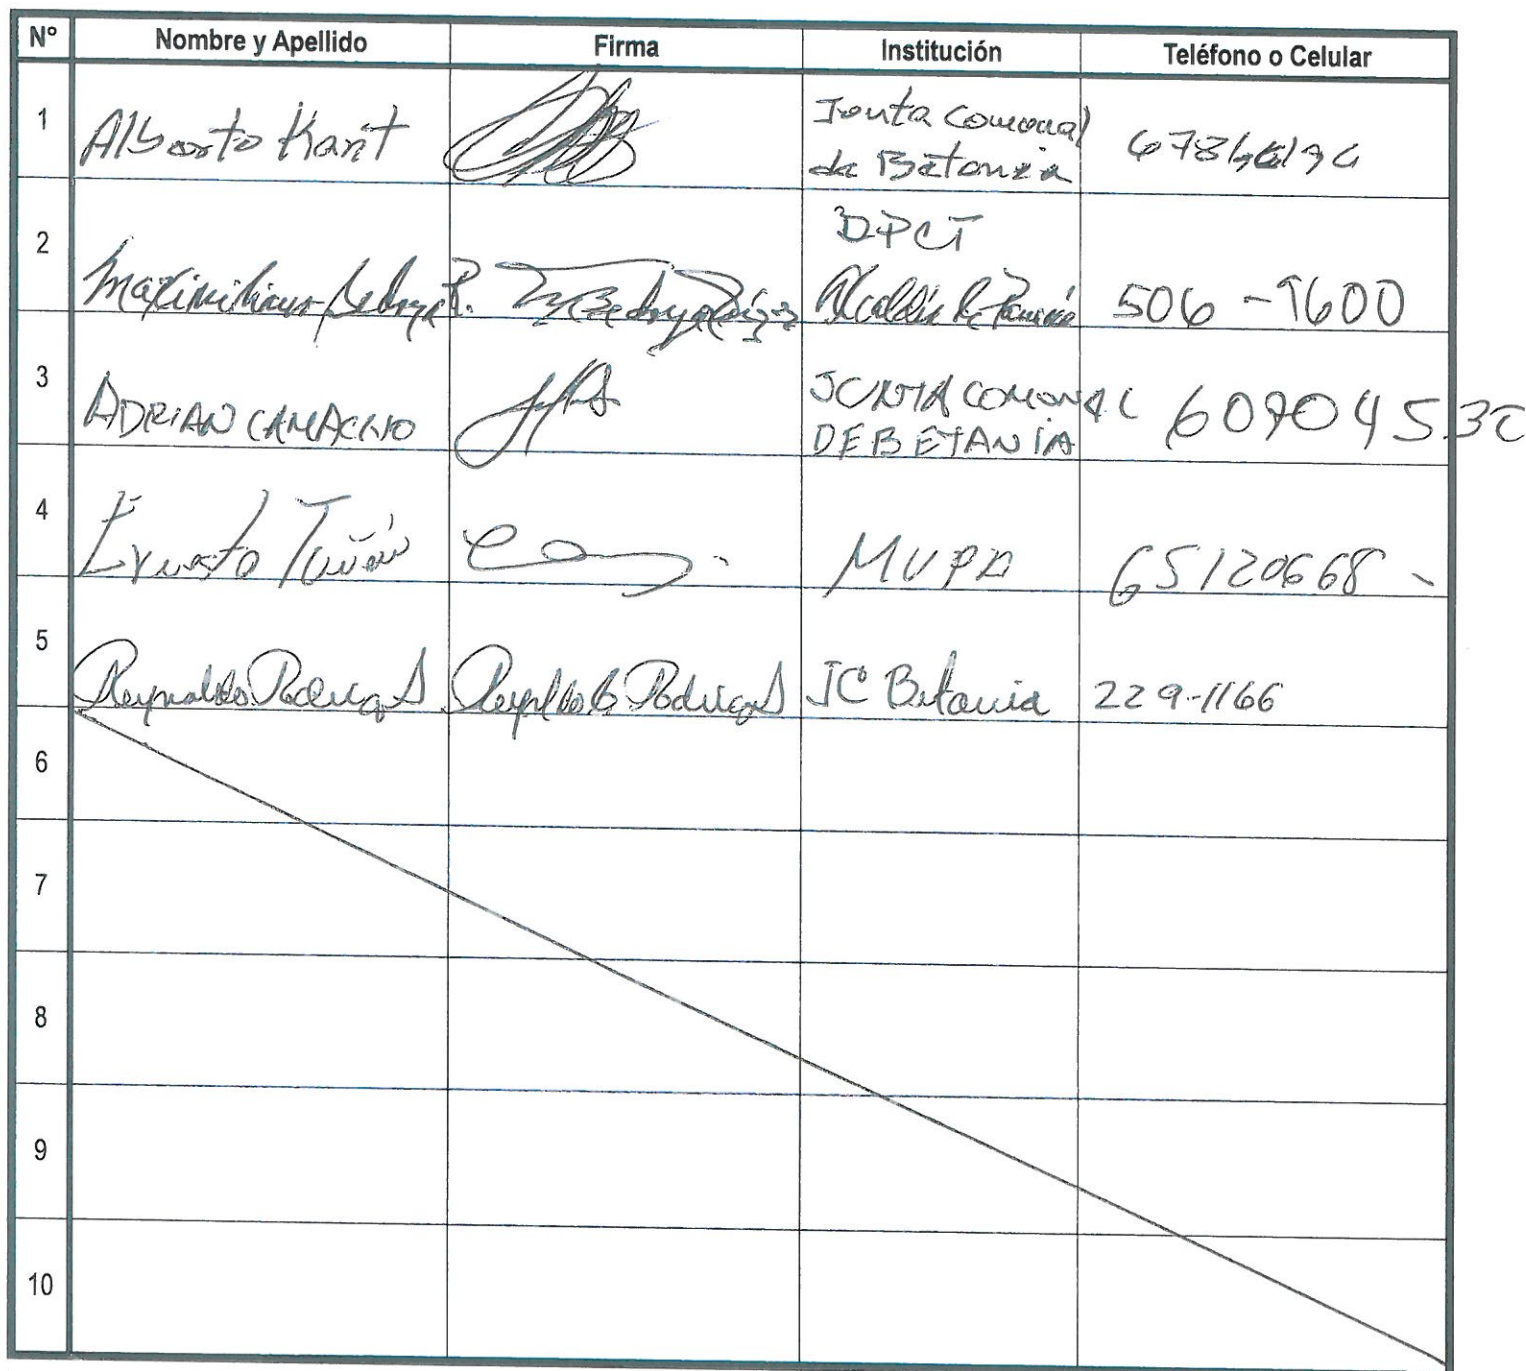 N° Nombre y Apellido Firma Institución Teléfono o Celular
1 Alberto Kant Junta Comunal
de Betania
2 DPCT
Maximiliano R. Alcaldía de Panamá 506-9600
3 ADRIAN CAMACHO JUNTA COMUNAL
DE BETANIA
4 Ernesto Tuñón MUPA 65120668
5 Reynaldo Rodríguez Reynaldo Rodríguez JC Betania 229-1166
6
7
8
9
10